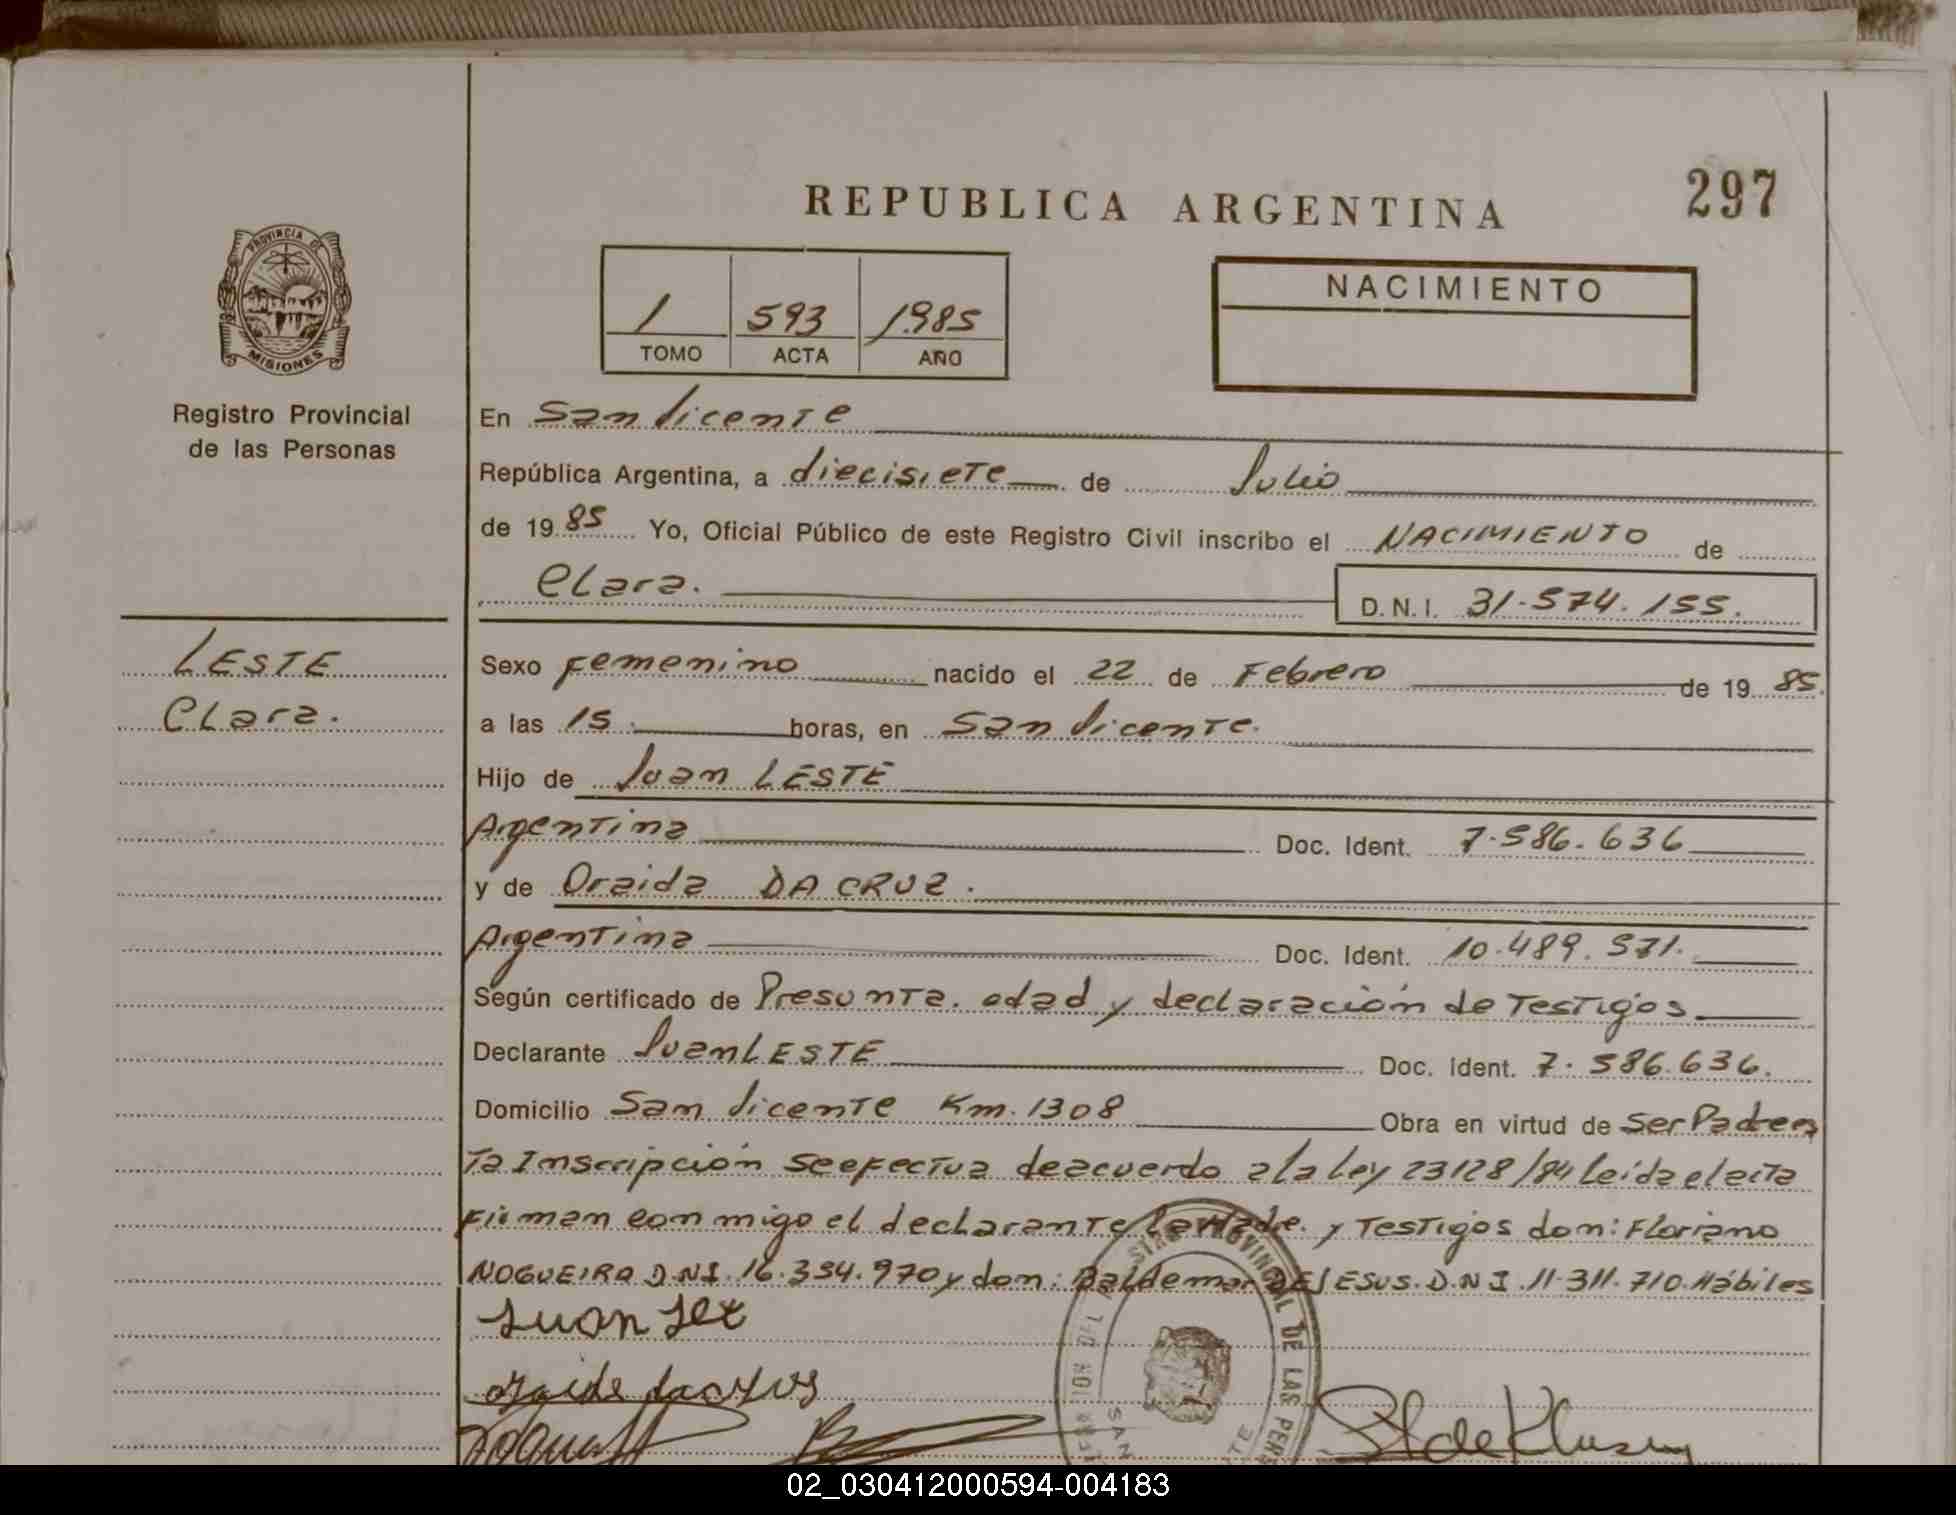 297
REPUBLICA ARGENTINA
PROVINCIA DE
MISIONES
Registro Provincial
de las Personas
1 593 1985
TOMO ACTA AÑO
NACIMIENTO
En San Vicente
República Argentina, a diecisiete de Julio
de 1985 Yo, Oficial Público de este Registro Civil inscribo el NACIMIENTO de
Clara.
D.N.I. 31.574.155.
LESTE
Clara.
Sexo Femenino nacido el 22 de Febrero de 1985.
a las 15. horas, en San Vicente.
Hijo de Juan LESTE
Argentina Doc. Ident. 7.586.636
y de Oraida DA CRUZ.
Argentina Doc. Ident. 10.489.571.
Según certificado de Presunta. edad y declaración de Testigos
Declarante Juan LESTE Doc. Ident. 7.586.636.
Domicilio San Vicente Km. 1308 Obra en virtud de Ser Padre
Ta Inscripción se efectua deacuerdo a la Ley 23128/84 leida el acta
Firman conmigo el declarante la Madre. y Testigos don: Floriano
NOGUEIRA D.N.I. 16.394.970 y don: Baldemar DEJESUS. D.N.I. 11.311.710. Hábiles
DEL REGISTRO PROVINCIAL DE LAS PER
SAN
TE
02_030412000594-004183